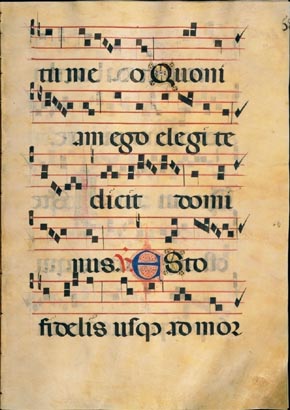 tu me o Quoni
am ego elegi te
dicit domi
nus. ℣ Esto
fidelis usqꝫ ad mor